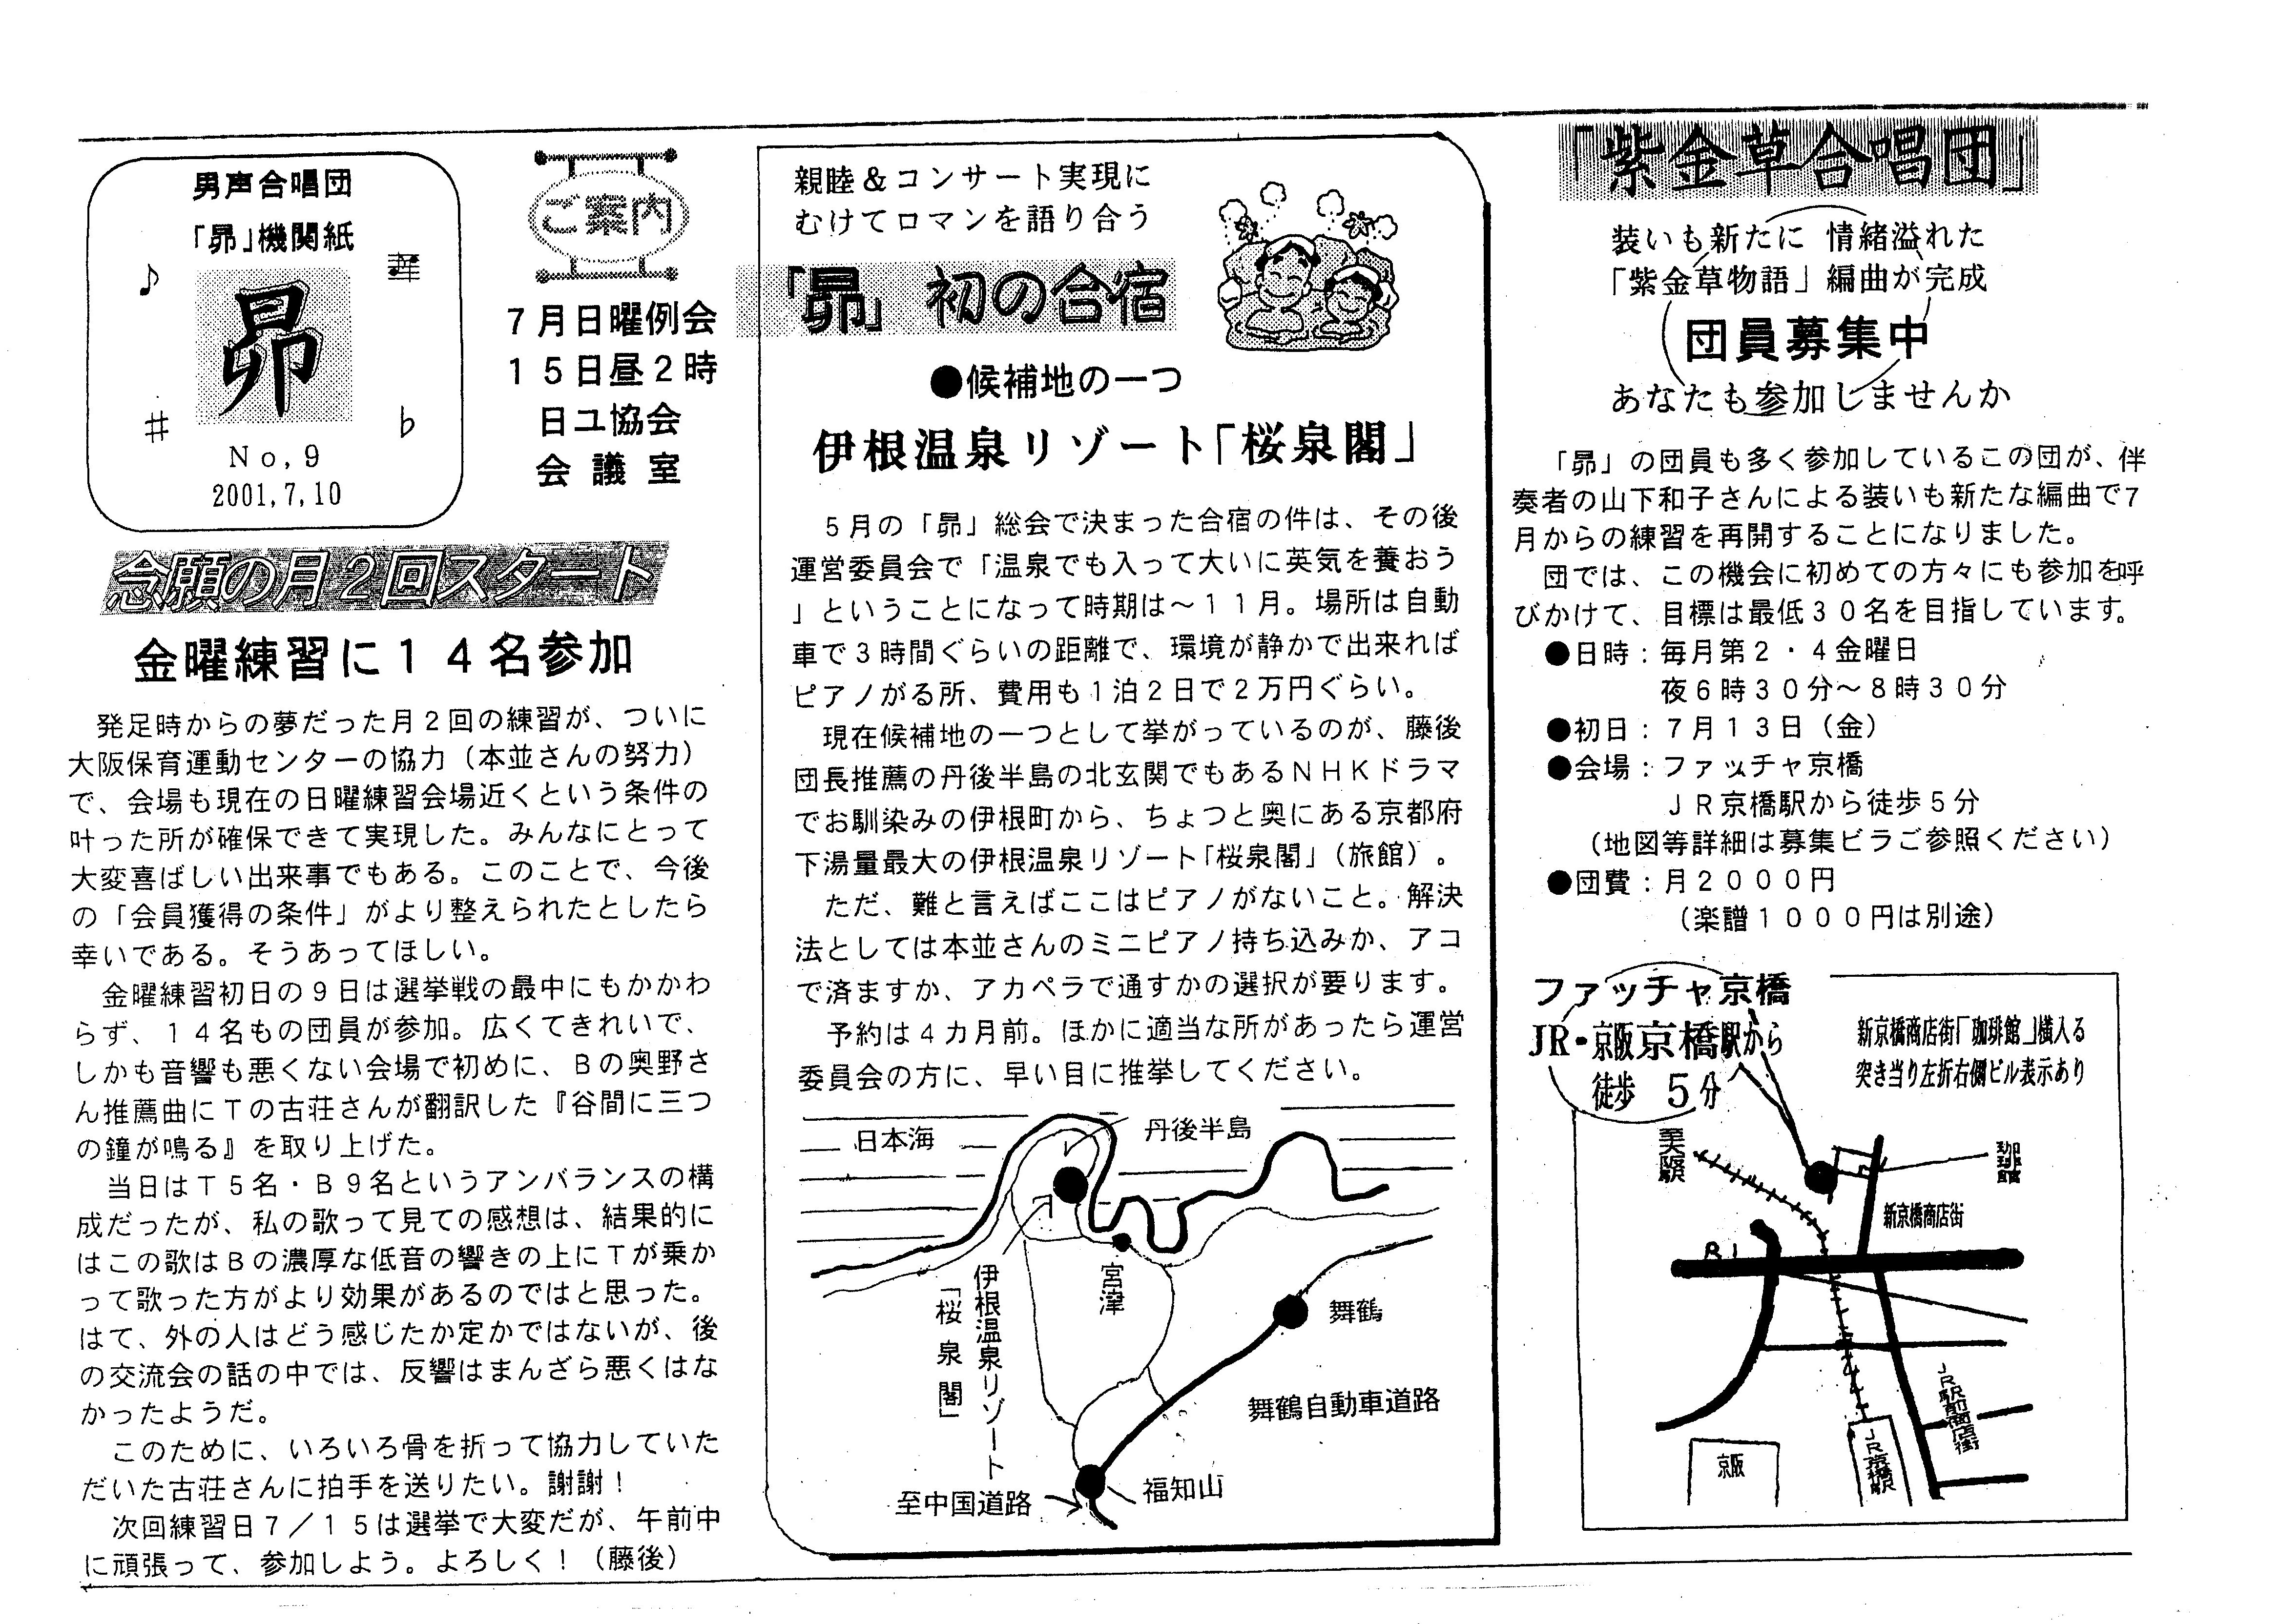 男声合唱団
「昴」機関紙
昴
No,9
2001,7,10
ご案内
7月日曜例会
15日昼2時
日ユ協会
会議室
念願の月2回スタート
金曜練習に14名参加
発足時からの夢だった月2回の練習が、ついに
大阪保育運動センターの協力（本並さんの努力）
で、会場も現在の日曜練習会場近くという条件の
叶った所が確保できて実現した。みんなにとって
大変喜ばしい出来事でもある。このことで、今後
の「会員獲得の条件」がより整えられたとしたら
幸いである。そうあってほしい。
金曜練習初日の9日は選挙戦の最中にもかかわ
らず、14名もの団員が参加。広くてきれいで、
しかも音響も悪くない会場で初めに、Bの奥野さ
ん推薦曲にTの古荘さんが翻訳した『谷間に三つ
の鐘が鳴る』を取り上げた。
当日はT5名・B9名というアンバランスの構
成だったが、私の歌って見ての感想は、結果的に
はこの歌はBの濃厚な低音の響きの上にTが乗か
って歌った方がより効果があるのではと思った。
はて、外の人はどう感じたか定かではないが、後
の交流会の話の中では、反響はまんざら悪くはな
かったようだ。
このために、いろいろ骨を折って協力していた
だいた古荘さんに拍手を送りたい。謝謝！
次回練習日7／15は選挙で大変だが、午前中
に頑張って、参加しよう。よろしく！（藤後）
親睦＆コンサート実現に
むけてロマンを語り合う
「昴」初の合宿
●候補地の一つ
伊根温泉リゾート「桜泉閣」
5月の「昴」総会で決まった合宿の件は、その後
運営委員会で「温泉でも入って大いに英気を養おう
」ということになって時期は～11月。場所は自動
車で3時間ぐらいの距離で、環境が静かで出来れば
ピアノがる所、費用も1泊2日で2万円ぐらい。
現在候補地の一つとして挙がっているのが、藤後
団長推薦の丹後半島の北玄関でもあるNHKドラマ
でお馴染みの伊根町から、ちょつと奥にある京都府
下湯量最大の伊根温泉リゾート「桜泉閣」（旅館）。
ただ、難と言えばここはピアノがないこと。解決
法としては本並さんのミニピアノ持ち込みか、アコ
で済ますか、アカペラで通すかの選択が要ります。
予約は4カ月前。ほかに適当な所があったら運営
委員会の方に、早い目に推挙してください。
日本海
丹後半島
伊根温泉リゾート
「桜泉閣」
宮津
舞鶴
舞鶴自動車道路
福知山
至中国道路
「紫金草合唱団」
装いも新たに 情緒溢れた
「紫金草物語」編曲が完成
団員募集中
あなたも参加しませんか
「昴」の団員も多く参加しているこの団が、伴
奏者の山下和子さんによる装いも新たな編曲で7
月からの練習を再開することになりました。
団では、この機会に初めての方々にも参加を呼
びかけて、目標は最低30名を目指しています。
●日時：毎月第2・4金曜日
夜6時30分～8時30分
●初日：7月13日（金）
●会場：ファッチャ京橋
JR京橋駅から徒歩5分
（地図等詳細は募集ビラご参照ください）
●団費：月2000円
（楽譜1000円は別途）
ファッチャ京橋
JR・京阪京橋駅から
徒歩 5分
新京橋商店街「珈琲館」横入る
突き当り左折右側ビル表示あり
珈琲館
新京橋商店街
R1
JR駅前商店街
京阪
JR京橋駅